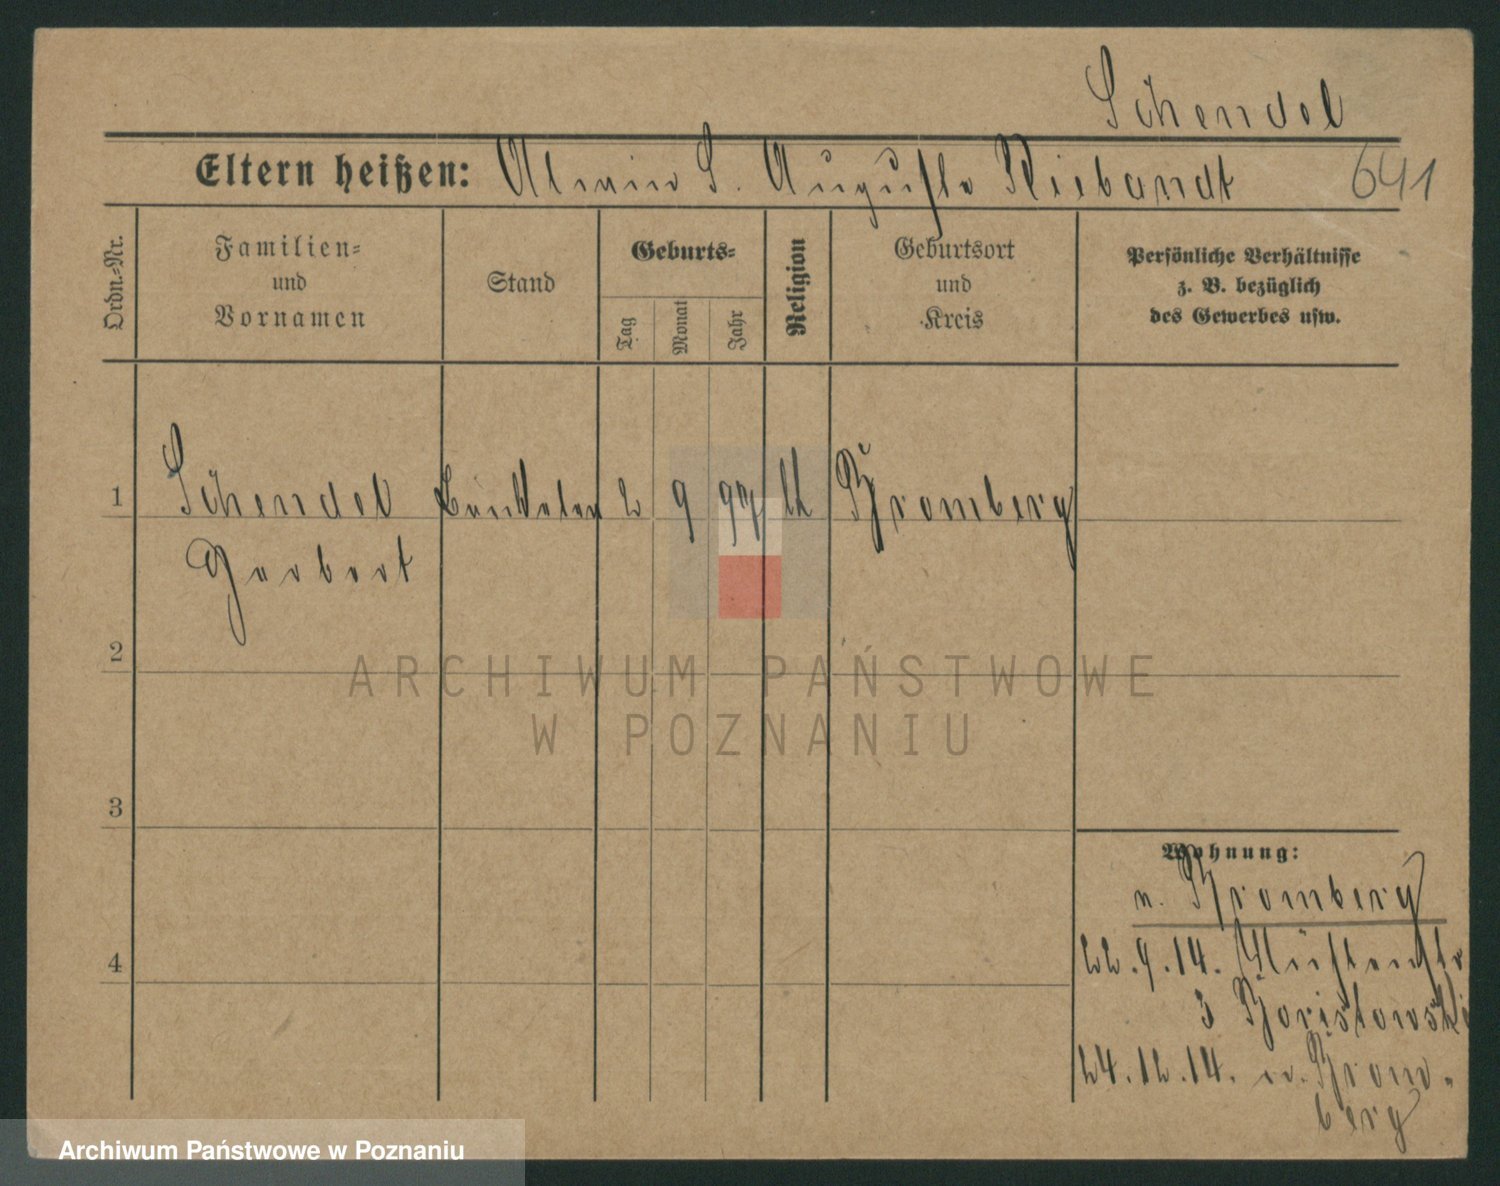 Schendel
Eltern heißen: Alwin S. Auguste Riebandt 641
Ordn.-Nr.
Familien-
und
Vornamen
Stand
Geburts-
Tag
Monat
Jahr
Religion
Geburtsort
und
Kreis
Persönliche Verhältnisse
z. B. bezüglich
des Gewerbes usw.
1 Schendel 2 9 97 Bromberg
2
3
4
ARCHIWUM PAŃSTWOWE
W POZNANIU
Wohnung:
n. Bromberg
22.9.14.
3
24.12.14. n. Brom-
berg
Archiwum Państwowe w Poznaniu